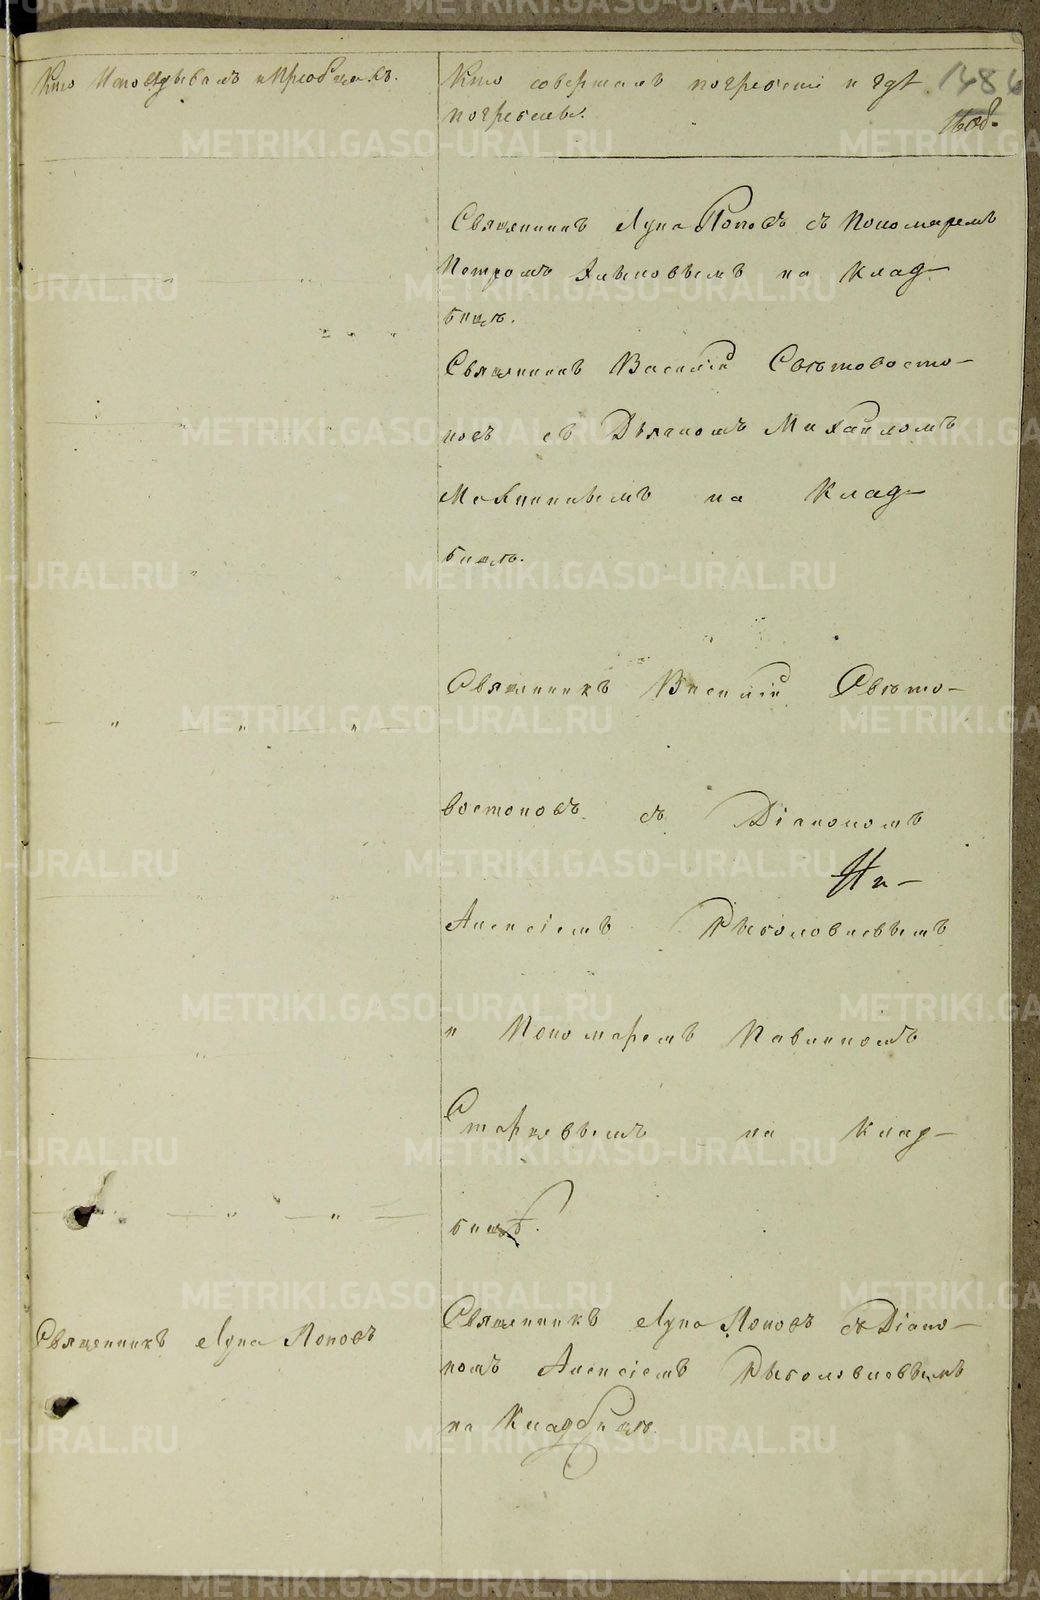 Кто Исповѣдывалъ и Пріобщалъ.
Кто совершалъ погребеніе и гдѣ
погребены.
1486
Священникъ Лука Поповъ съ Пономаремъ
Петромъ на Клад-
бищѣ.
Священникъ Василій Свѣтовосто-
ковъ съ Діакономъ Михаиломъ
на Клад-
бищѣ.
Священникъ Василій Свѣто-
востоковъ съ Діакономъ
Ни-
Алексіемъ Рыболовлевымъ
и Пономаремъ Павлиномъ
Старцевымъ на Клад-
бищѣ.
Священникъ Лука Поповъ
Священникъ Лука Поповъ съ Діако-
номъ Алексіемъ Рыболовлевымъ
на Кладбищѣ.
METRIKI.GASO-URAL.RU